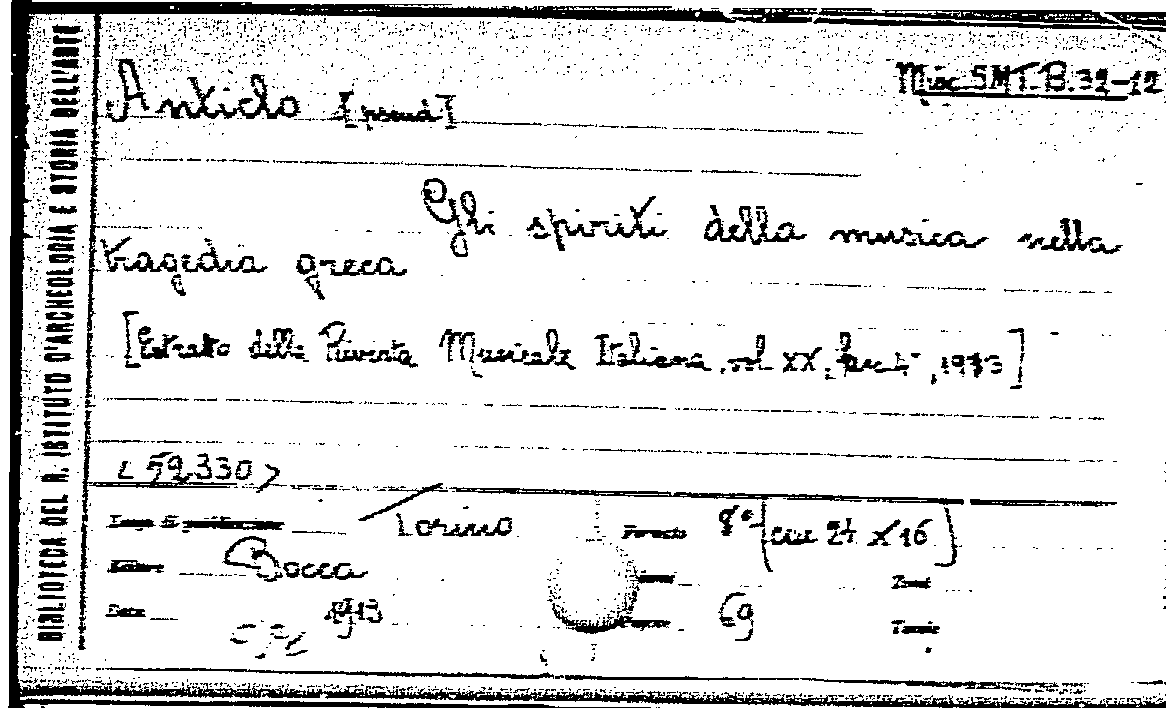 BIBLIOTECA DEL R. ISTITUTO D'ARCHEOLOGIA E STORIA DELL'ARTE
Misc. SMT. B. 32-12
Anticlo [pseud]
Gli spiriti della musica nella
tragedia greca
[Estratto della Rivista Musicale Italiana, vol XX, fasc 4°, 1913]
< 52330 >
Luogo di pubblicazione Torino Formato 8° (cm 24 x 16)
Editore Bocca
Data 1913 Pagine 69 Tavole